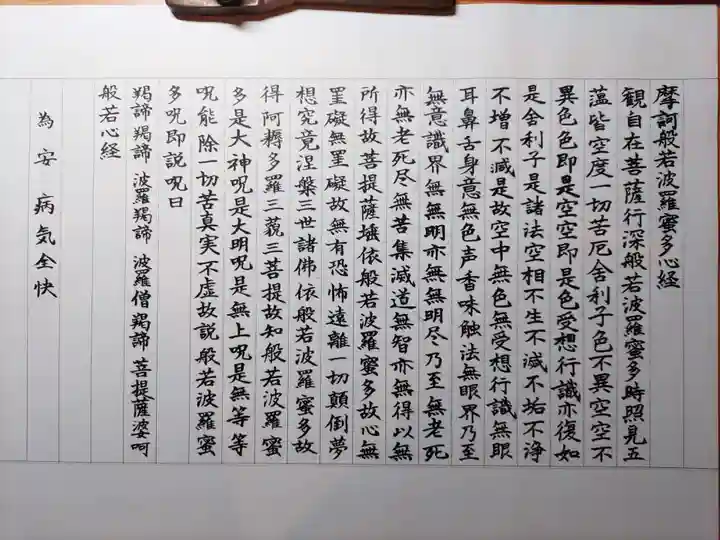 摩訶般若波羅蜜多心経
観自在菩薩行深般若波羅蜜多時照見五
薀皆空度一切苦厄舍利子色不異空空不
異色色即是空空即是色受想行識亦復如
是舍利子是諸法空相不生不滅不垢不浄
不増不減是故空中無色無受想行識無眼
耳鼻舌身意無色声香味触法無眼界乃至
無意識界無無明亦無無明尽乃至無老死
亦無老死尽無苦集滅道無智亦無得以無
所得故菩提薩埵依般若波羅蜜多故心無
罣礙無罣礙故無有恐怖遠離一切顛倒夢
想究竟涅槃三世諸佛依般若波羅蜜多故
得阿耨多羅三藐三菩提故知般若波羅蜜
多是大神呪是大明呪是無上呪是無等等
呪能除一切苦真実不虚故説般若波羅蜜
多呪即説呪曰
羯諦羯諦 波羅羯諦 波羅僧羯諦 菩提薩婆呵
般若心経
為 安 病気全快